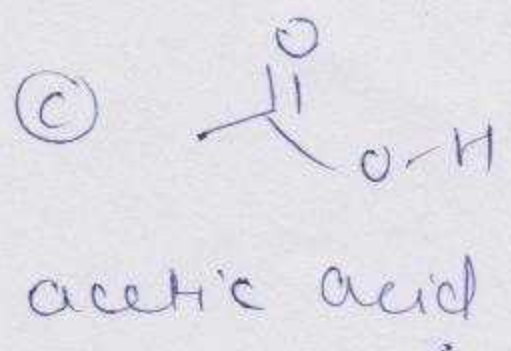 O
C
O-H
acetic acid